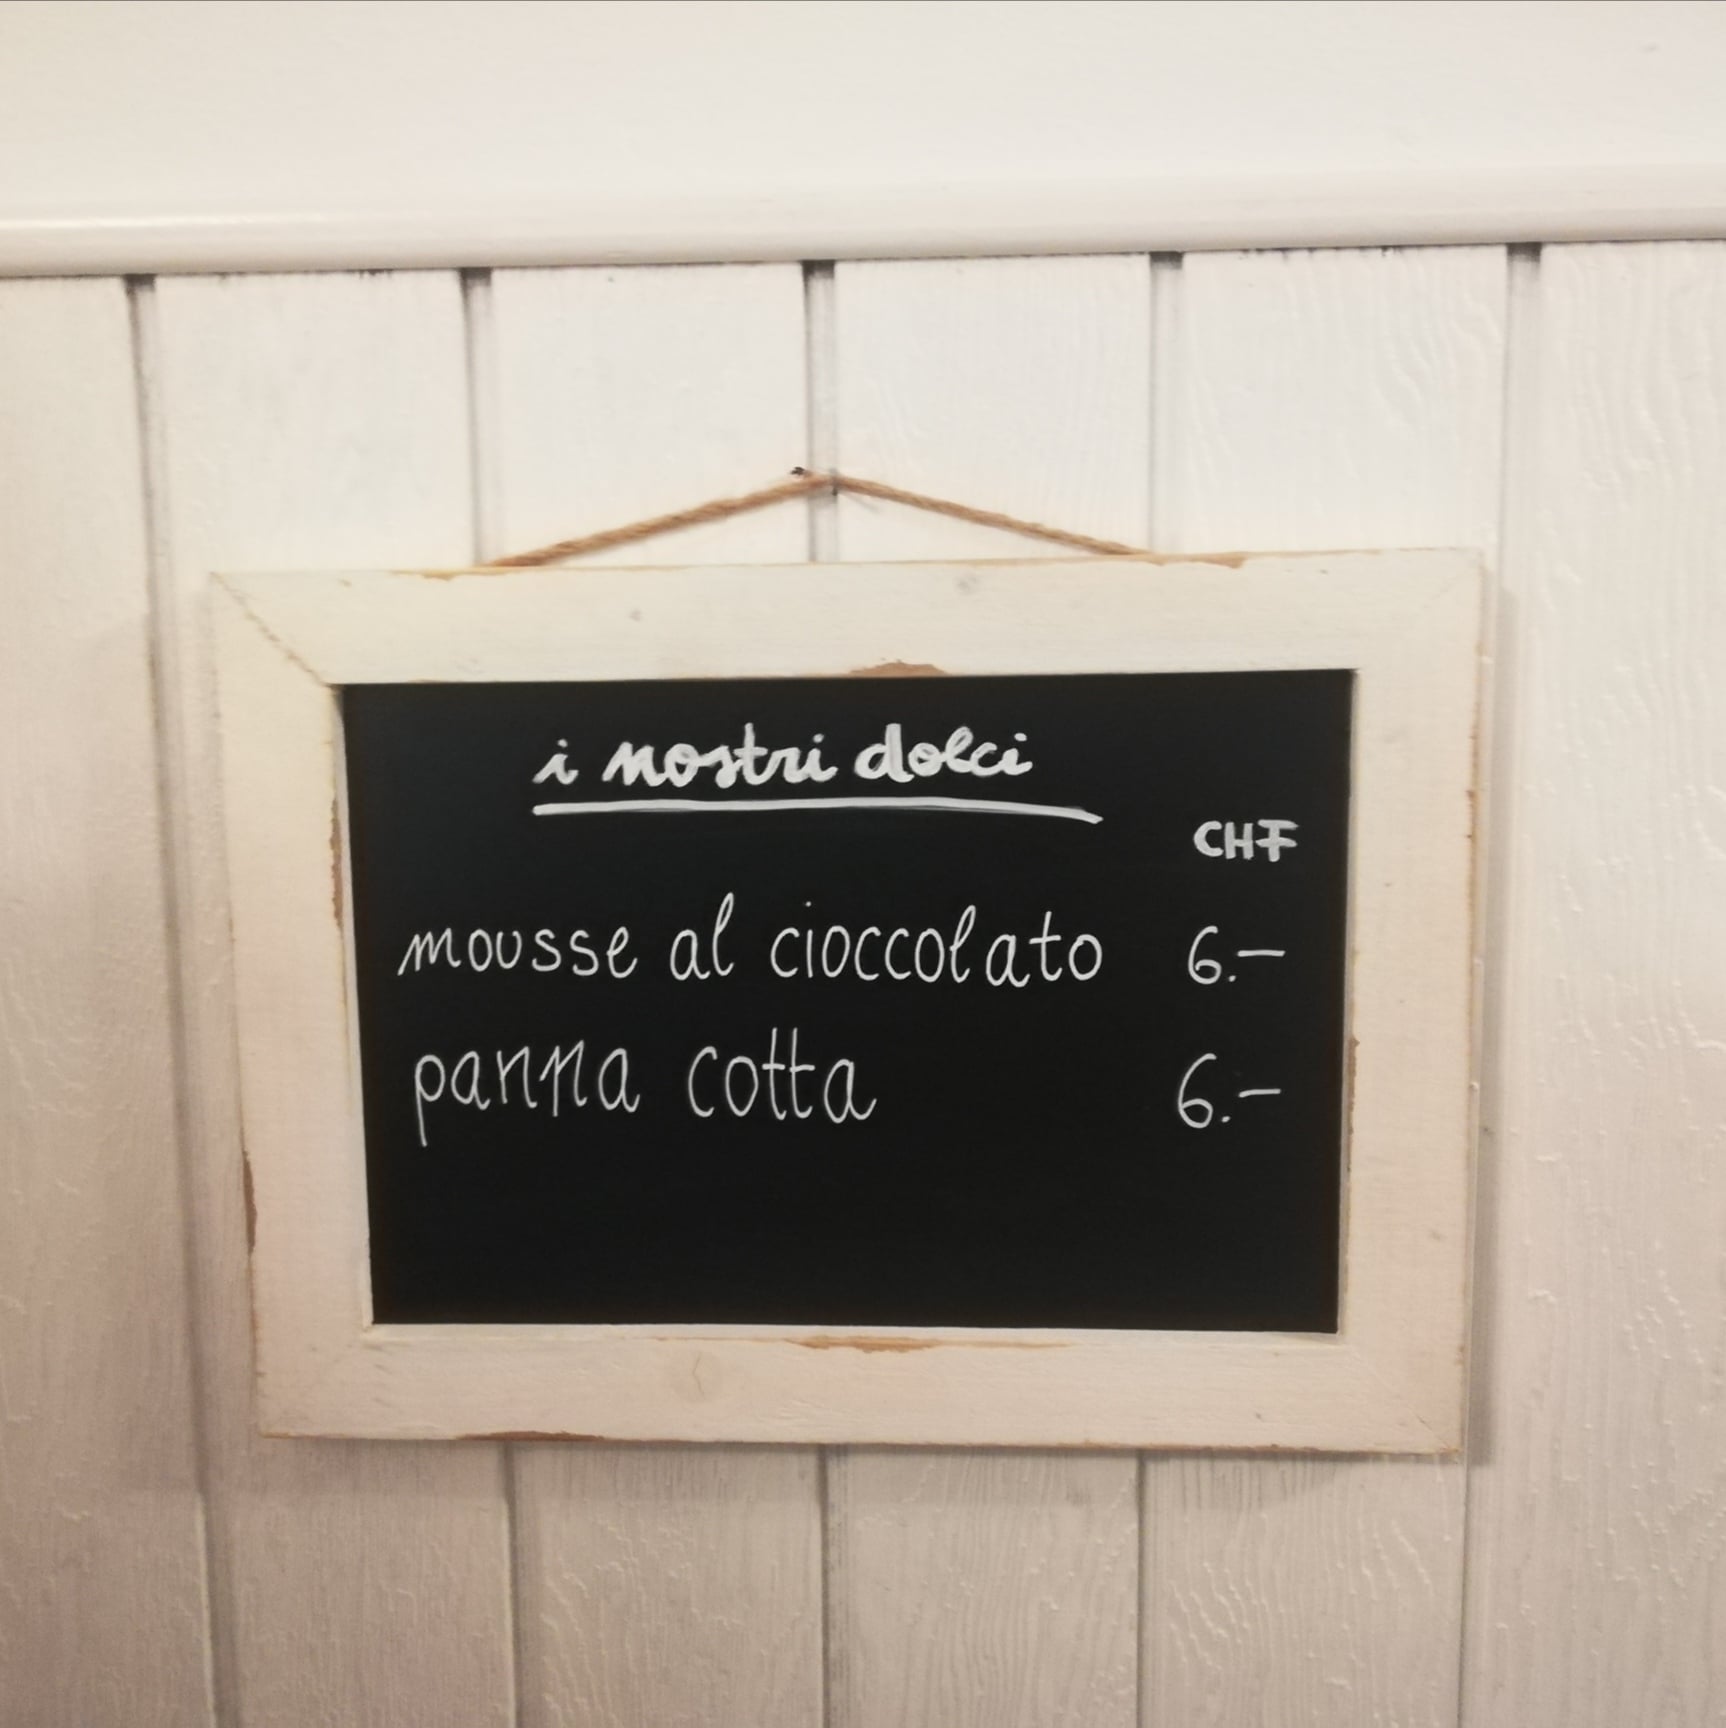 i nostri dolci
CHF
mousse al cioccolato 6.–
panna cotta 6.–